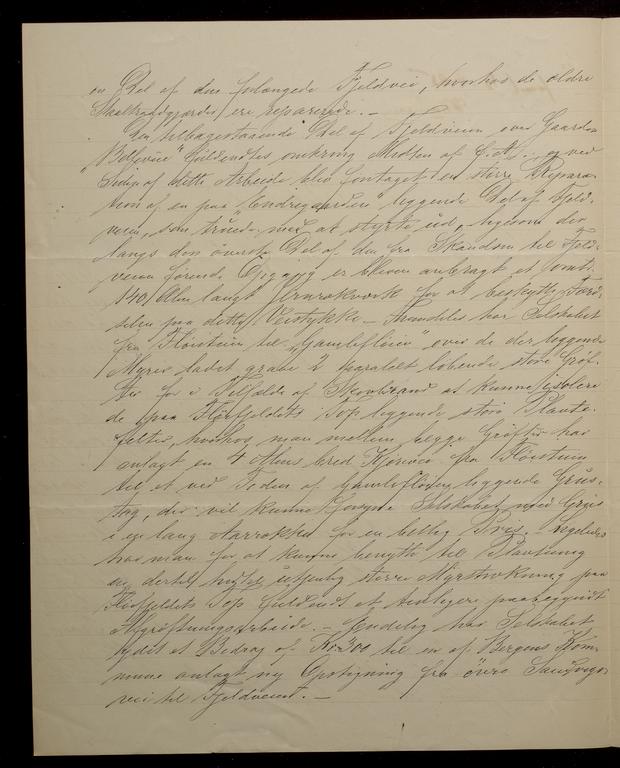 en Del af den forlængede Fjeldvei, hvorhos de ældre
Staaltraadgjærder ere reparerede. —
En tilbagestaaende Del af Fjeldveien over Gaarden
"Bellevue" fuldendtes omkring Midten af f. A., og ved
Siden af dette Arbeide blev foretaget en større Repara-
tion af en paa "Endregaarden" liggende Del af Fjeld-
veien, som truede med at styrte ud, ligesom der
langs den øverste Del af den fra Skandsen til Fjeld-
veien førende Opgang er bleven anbragt et omtr.
140 Alen langt Jernrækværk for at beskytte Færd-
selen paa dette Veistykke. — Fremdeles har Selskabet
fra Fløistuen til "Gamlefløien" over de der liggende
Myrer ladet grave 2 parallelt løbende store Grøf-
ter for i Tilfælde af Skovbrand at kunne isolere
de paa Fløifjeldets Top liggende store Plante-
felter, hvorhos man mellem begge Grøfter har
anlagt en 4 Alens bred Kjørevei fra Fløistuen
til et ved Foden af Gamlefløien liggende Grus-
tag, der vil kunne forsyne Selskabet med Grus
i en lang Aarrække for en billig Pris. — Ligeledes
har man for at kunne benytte til Plantning
en dertil hidtil utjenlig større Myrstrækning paa
Fløifjeldets Top fuldendt et tidligere paabegyndt
Afgrøftningsarbeide. — Endelig har Selskabet
ydet et Bedrag af Kr 300 til en af Bergens Kom-
mune anlagt ny Opstigning fra øvre Sandvigs-
vei til Fjeldveien. —